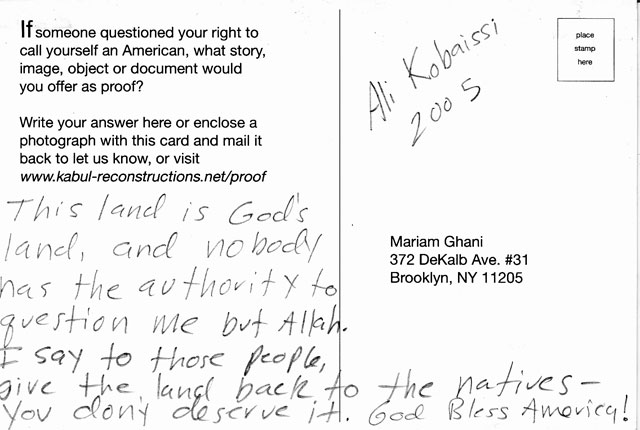 If someone questioned your right to
call yourself an American, what story,
image, object or document would
you offer as proof?
Write your answer here or enclose a
photograph with this card and mail it
back to let us know, or visit
www.kabul-reconstructions.net/proof
This land is God's
land, and nobody
has the authority to
question me but Allah.
I say to those people,
give the land back to the natives–
you dony deserve it. God Bless America!
Ali Kobaissi
2005
place
stamp
here
Mariam Ghani
372 DeKalb Ave. #31
Brooklyn, NY 11205